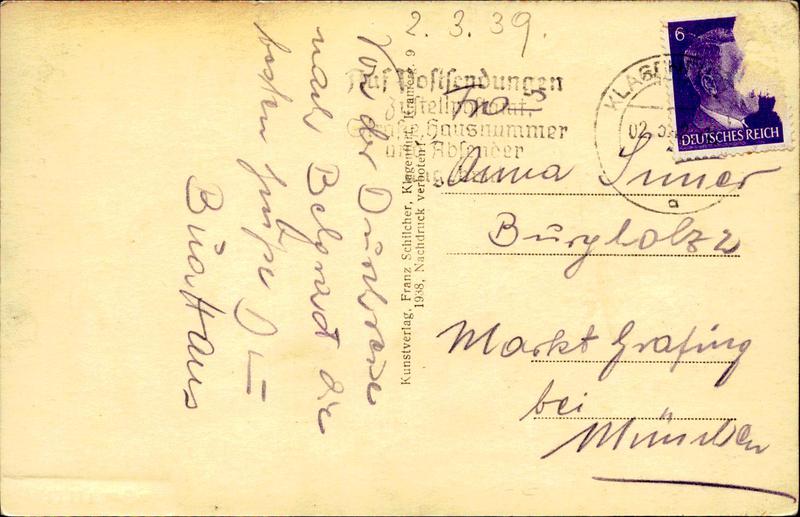 2. 3. 39.
Von der Durchreise
nach Belgrad die
besten Grüße Dir
Bua Hans
Kunstverlag, Franz Schilcher, Klagenfurt, Kramerg. 9
1938, Nachdruck verboten!
Auf Postsendungen
Zustellpostamt,
Straße, Hausnummer
und Absender
KLAGENFURT
02. 3
a
6
DEUTSCHES REICH
Frs
Anna
Burgholz 2
Markt Grafing
bei
München